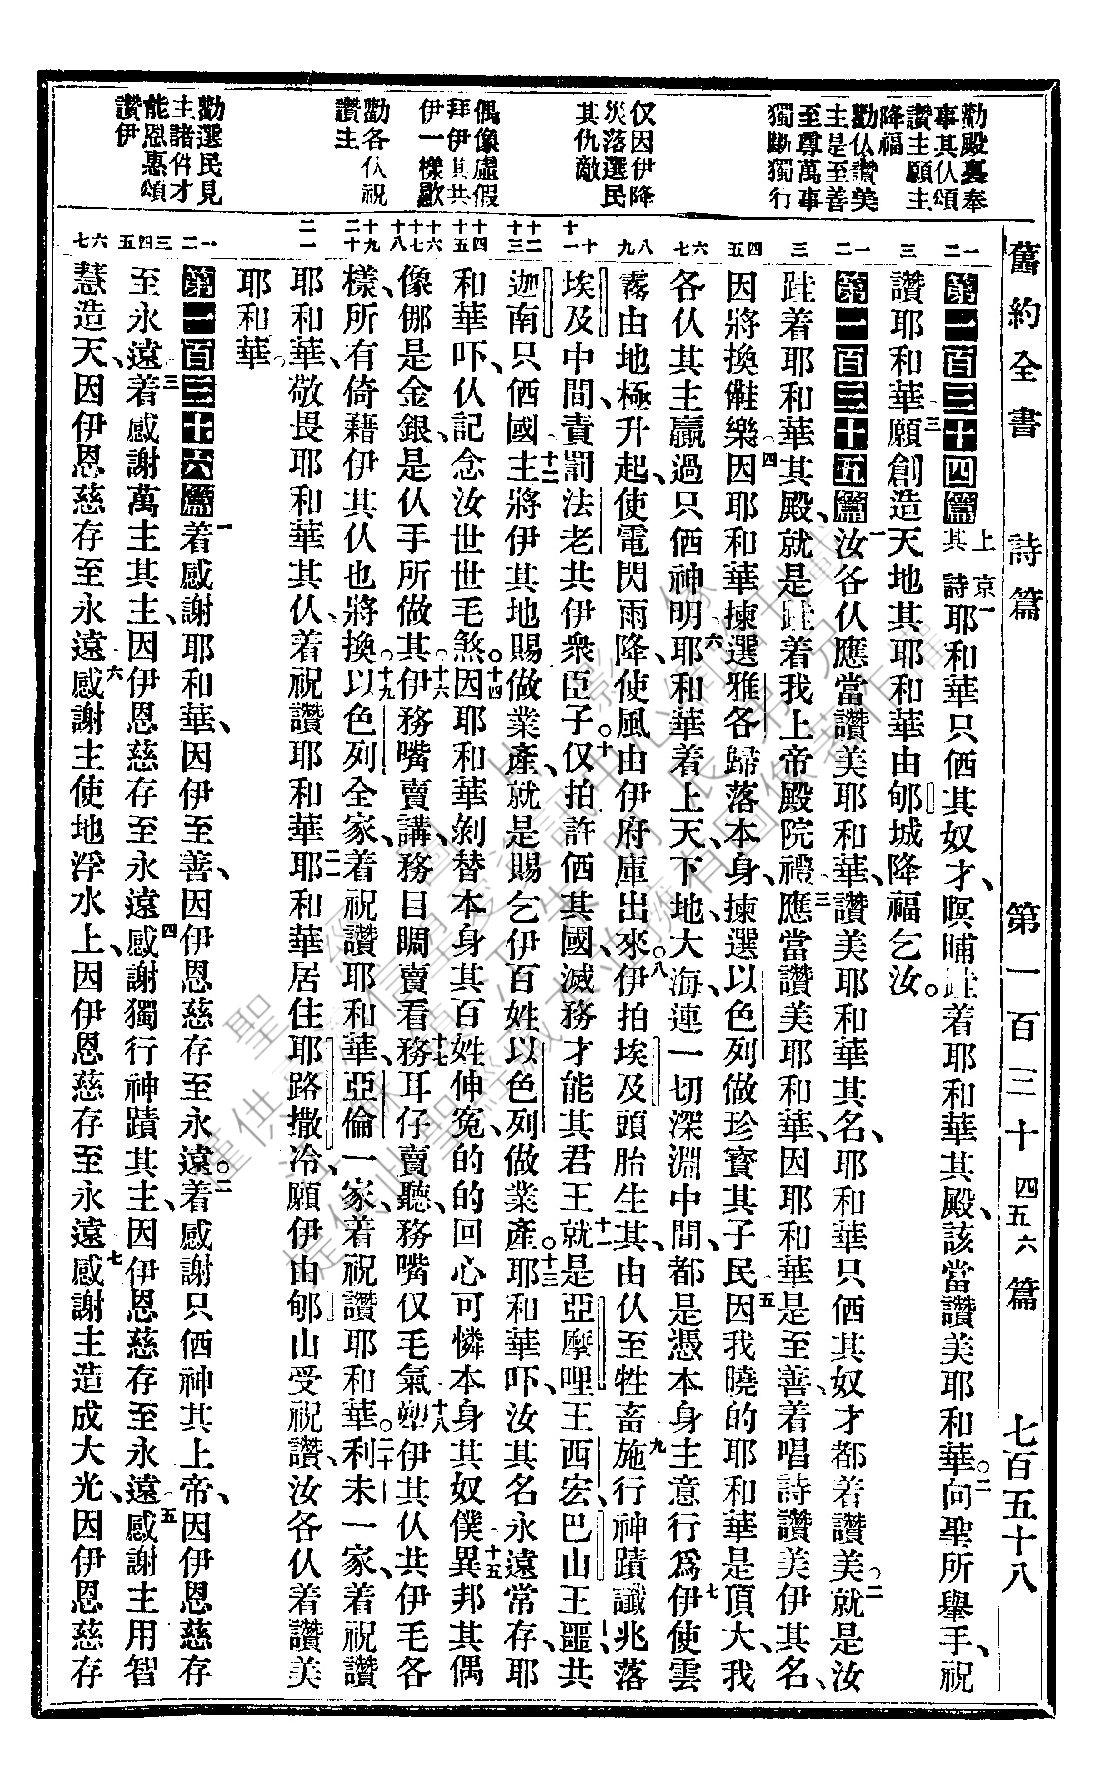 舊約全書 詩篇 第一百三十四五六篇 七百五十八
勸殿裏奉
事其仆頌
讚主願主
降福
勸仏讚美
主是至善
至尊萬事
獨斷獨行
仅因伊降
災落選民
其仇敵
偶像虛假
拜伊其共
伊一樣歇
勸各仏祝
讚主
勸選民見
主諸件才
能恩惠頌
讚伊
第一百三十四篇 上京其詩 一耶和華只儕其奴才、暝晡跍着耶和華其殿、該當讚美耶和華。二向聖所舉手、祝
讚耶和華三願創造天地其耶和華由郇城降福乞汝。
第一百三十五篇 一汝各仏應當讚美耶和華、讚美耶和華其名、耶和華只儕其奴才都着讚美。二就是汝
跍着耶和華其殿、就是跍着我上帝殿院裡、三應當讚美耶和華、因耶和華是至善、着唱詩讚美伊其名、
因將換雔樂四因耶和華揀選雅各歸落本身、揀選以色列做珍寶其子民五因我曉的耶和華是頂大、我
各仏其主贏過只儕神明、六耶和華着上天、下地、大海、連一切深淵中間、都是憑本身主意行爲七伊使雲
霧由地極升起、使電閃雨降、使風由伊府庫出來。八伊拍埃及頭胎生其、由仏至牲畜九施行神蹟讖兆落
埃及中間、責罰法老共伊衆臣子。十仅拍許儕其國、滅務才能其君王十一就是亞摩哩王西宏、巴山王噩、共
迦南只儕國主十二將伊其地賜做業產、就是賜乞伊百姓以色列做業產。十三耶和華吓、汝其名永遠常存、耶
和華吓、仏記念汝世世毛煞。十四因耶和華剝替本身其百姓伸冤、的的回心可憐本身其奴僕十五異邦其偶
像、儺是金銀、是仏手所做其。十六伊務嘴賣講、務目睭賣看十七務耳仔賣聽、務嘴仅毛氣十八塑伊其仏共伊毛各
樣、所有倚藉伊其仏也將換。十九以色列全家、着祝讚耶和華、亞倫一家、着祝讚耶和華。二十利未一家、着祝讚
耶和華、敬畏耶和華其仏、着祝讚耶和華二一耶和華居住耶路撒冷、願伊由郇山受祝讚、汝各仏着讚美
耶和華。
第一百三十六篇 一着感謝耶和華、因伊至善、因伊恩慈存至永遠。二着感謝只儕神其上帝、因伊恩慈存
至永遠三着感謝萬主其主、因伊恩慈存至永遠四感謝獨行神蹟其主、因伊恩慈存至永遠五感謝主用智
慧造天、因伊恩慈存至永遠六感謝主使地浮水上、因伊恩慈存至永遠七感謝主造成大光、因伊恩慈存